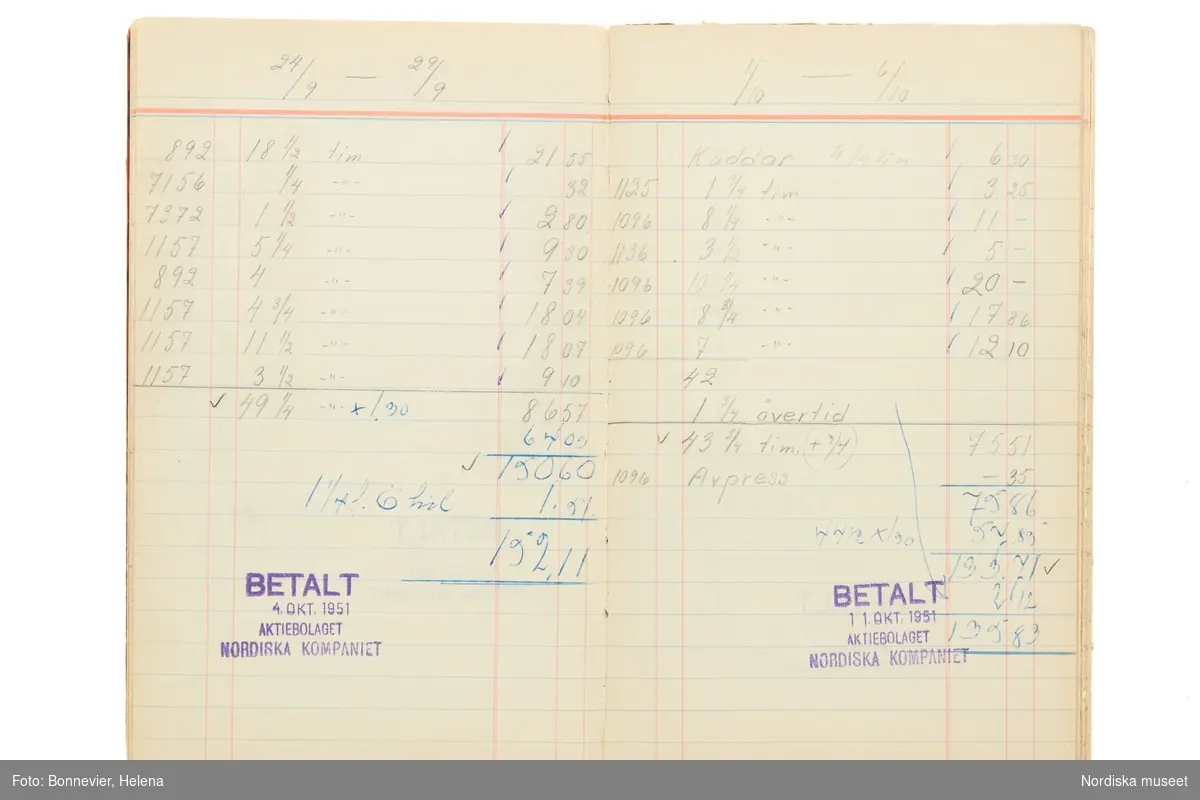 24/9 — 29/9
892 18 1/2 tim 21 55
7156 1/4 -"- 32
7372 1 1/2 -"- 2 80
1157 5 1/4 -"- 9 30
892 4 -"- 7 39
1157 4 3/4 -"- 18 04
1157 11 1/2 -"- 18 07
1157 3 1/2 -"- 9 10
✓ 49 1/4 -"- x 1.30 86 57
✓ 150,60
1.51.
152,11
BETALT
4. OKT. 1951
AKTIEBOLAGET
NORDISKA KOMPANIET
1/10 — 6/10
Kuddar 4 1/4 tim 6 30
1125 1 3/4 tim 3 25
1096 8 1/4 -"- 11 -
1136 3 1/2 -"- 5 -
1096 10 1/4 -"- 20 -
1096 8 3/4 -"- 17 86
1096 7 -"- 12 10
42
1 3/4 övertid
✓ 43 3/4 tim. (+ 3/4) 75 51
1096 Avpress - 35
75 86
x 1.30 57,85
133,71 ✓
2,12
135,83
BETALT
11. OKT. 1951
AKTIEBOLAGET
NORDISKA KOMPANIET
Foto: Bonnevier, Helena
Nordiska museet